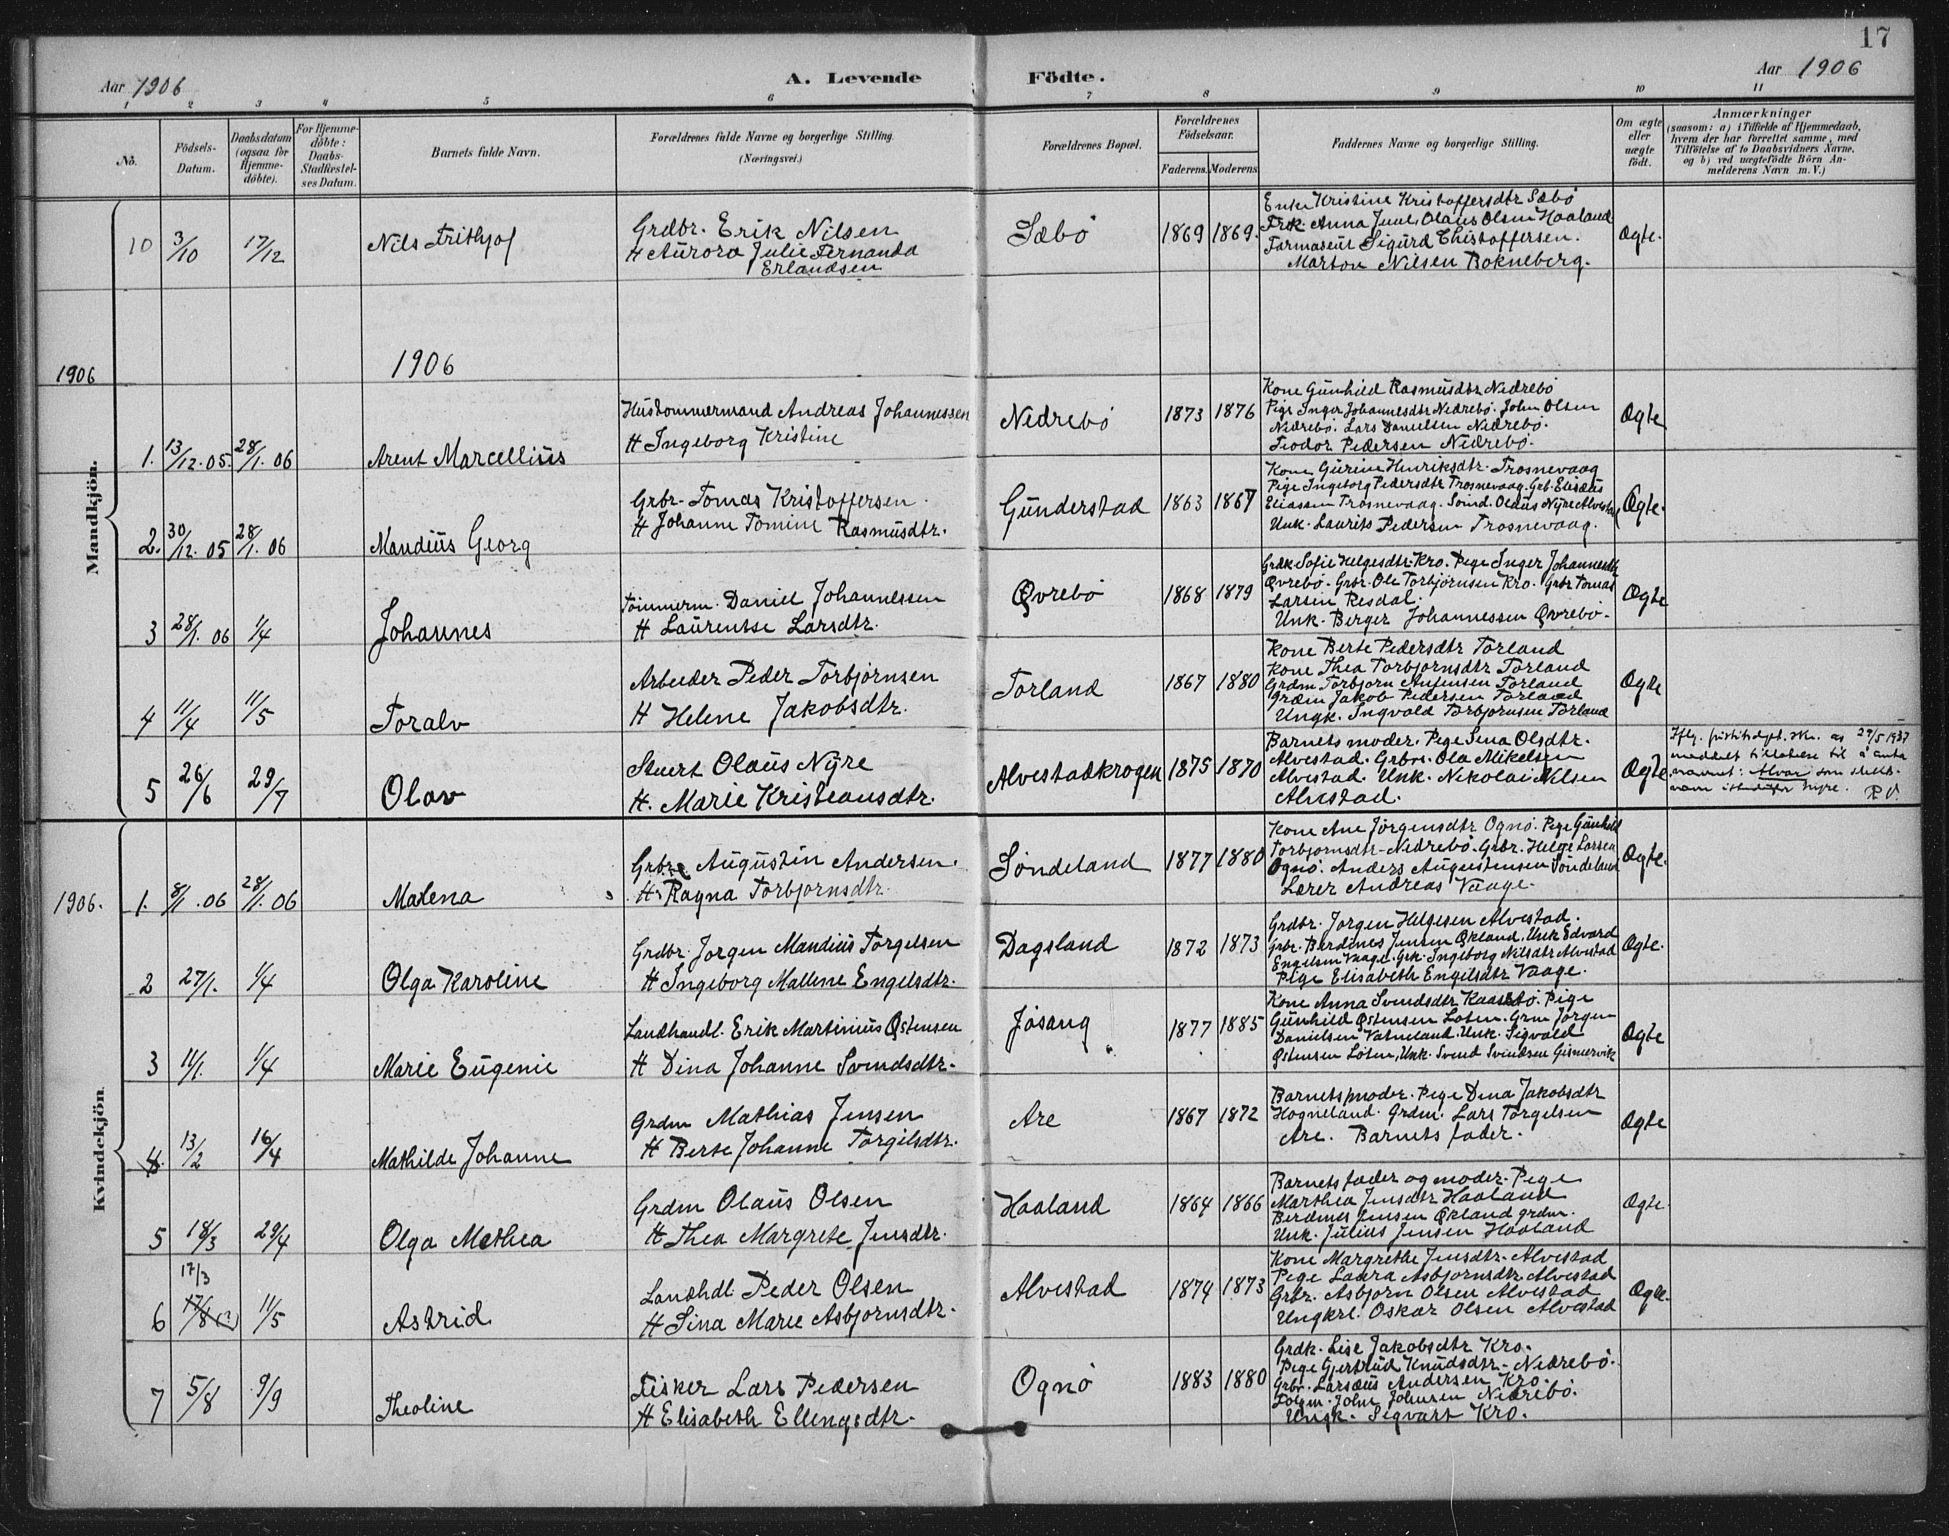 17
Aar 1906
A. Levende Födte.
Aar 1906
1 2 3 4 5 6 7 8 9 10 11
No.
Födsels-Datum.
Daabsdatum (ogsaa for Hjemme-döbte).
For Hjemme-döbte: Daabs-Stadfæstel-ses Datum.
Barnets fulde Navn.
Forældrenes fulde Navne og borgerlige Stilling.
(Næringsvei.)
Forældrenes Bopæl.
Forældrenes Födselsaar.
Faderens. Moderens
Faddernes Navne og borgerlige Stilling.
Om ægte eller uægte födt.
Anmærkninger
(saasom: a) i Tilfælde af Hjemmedaab,
hvem der har forrettet samme, med
Tilföielse af to Daabsvidners Navne,
og b) ved uægtefödte Börn An-
melderens Navn m. V.)
Mandkjön.
10 3/10 17/12 Nils Frithjof
Grdbr. Erik Nilsen
H Aurora Julie Fernanda
Erlandsen
Sæbö 1869 1869.
Enke Kristine Kristoffersdtr Sæbö
Frk. Anna Juul, Olaus Olsen Haaland
Farmaseut Sigurd Christoffersen.
Marton Nilsen Bokneberg.
Ægte.
1906
1906
1. 13/12.05. 28/1.06 Arent Marcellius
Hustømmermand Andreas Johannessen
H Ingeborg Kristine
Nedrebö 1873 1876
Kone Gunhild Rasmusdtr Nedrebö
Pige Inger Johannesdtr Nedrebö. John Olsen
Nedrebö. Lars Danielsen Nedrebö.
Teodor Pedersen Nedrebö.
Ægte
2. 30/12.05 28/1.06 Mandius Georg
Grbr. Tomas Kristoffersen.
H Johanne Tomine Rasmusdtr.
Gunderstad 1863 1867
Kone Gurine Henriksdtr. Trosnevaag
Pige Ingeborg Pedersdtr Trosnevaag. Grb. Elisæus
Eliasen Trosnevaag. Olaus Nyre Alvestad
Unk. Laurits Pedersen Trosnevaag.
Ægte.
3 28/1.06 1/4 Johannes
Tömmerm. Daniel Johannessen
H Laurentse Larsdtr.
Øvrebö 1868 1879
Grdk Sofie Helgesdtr. Kro. Pege Inger Johannesdtr
Øvrebö. Grbr. Ole Torbjörnsen Kro. Grbr Tomas
Larsen Resdal.
Unk. Berger Johannessen Øvrebö.
Ægte
4 11/4 11/5 Toralv
Arbeider Peder Torbjörnsen
H Helene Jakobsdtr.
Torland 1867 1880
Kone Berte Pedersdtr Torland
Kone Thea Torbjornsdtr Torland
Grdm Torbjorn Torland
Grdm Jakob Pedersen Torland
Ungk. Ingvald Torbjornsen Torland
Ægte
5 26/6 29/7 Olav
Stuert Olaus Nyre
H. Marie Kristiansdtr.
Alvestadkrogen 1875 1870
Barnets moder. Pege Sina Olsdtr.
Alvestad. Grbr. Ola Mikelsen
Alvestad. Unk. Nikolai Nilsen
Alvestad.
Ægte
Iflg. justitsdpt. skr. av 29/5 1937
meddelt tillatelse til å anta
navnet: Alvar som
navn istedenfor Nyre. R V.
Kvindekjön
1906.
1. 8/1.06 28/1.06 Malena
Grbr. Augustin Andersen.
H. Ragna Torbjornsdtr.
Söndeland 1877 1880
Kone Ane Jörgensdtr Ognö. Pege Gunhild
Torbjornsdtr. Nedrebö. Grbr. Helge Larsen
Ognö. Anders Augustensen Söndeland
Lærer Andreas Vaage.
Ægte.
2 27/1. 1/4 Olga Karoline
Grdbr. Jorgen Mandius Torgelsen
H Ingeborg Mallene Engelsdtr.
Dagsland 1872 1873
Grdbr. Jorgen Helgesen Alvestad.
Grbr. Berdines Jensen Økland. Unk Edvard
Engelsen Vaage. Grk. Ingeborg Nilsdtr Alvestad
Pige Elisabeth Engelsdtr Vaage.
Ægte.
3 11/1. 1/4 Marie Eugenie
Landhandl. Erik Martinius Østensen
H Dina Johanne Svendsdtr.
Jøsang 1877 1885
Kone Anna Svendsdtr Kaasebö. Pige
Gunhild Østensen Loten. Grm Jorgen
Danielsen Vatneland. Unk. Sigvald
Østensen Loten, Unk. Svend Svendsen Gismervik
Ægte
4. 13/2 16/4 Mathilde Johanne
Grdm Mathias Jensen
H Berte Johanne Torgilsdtr.
Are 1867 1872
Barnets moder. Pege Dina Jakobsdtr
Hogneland. Grdm. Lars Torgelsen
Are. Barnets fader.
Ægte
5 18/3 29/4 Olga Mathea
Grdm Olaus Olsen
H Thea Margrete Jensdtr.
Haaland 1864 1866
Barnets fader og moder. Pige
Marthea Jensdtr Haaland
Berdines Jensen Økland grdm.
Unk. Julius Jensen Haaland
Ægte.
17/3
6 17/8 (?) 11/5 Astrid
Landhdl. Peder Olsen
H Sina Marie Asbjornsdtr.
Alvestad 1874 1873
Kone Margrethe Jensdtr. Alvestad
Pege Laura Asbjornsdtr. Alvestad
Grbr. Asbjorn Olsen Alvestad
Ungkrl. Oskar Olsen Alvestad
Ægte.
7 5/8 9/9 Theoline
Fisker Lars Pedersen
H Elisabeth Ellengsdtr.
Ognö 1883 1880
Grdk. Lise Jakobsdtr Kro.
Pige Gjertrud Knudsdtr. Nedrebö.
Grbr. Larsæus Andersen Kro.
John Johnsen Nedrebö.
Ungk. Sigvart Kro.